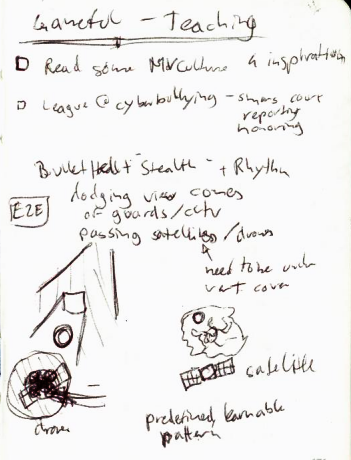 Gameful - Teaching
Read some MVculture 4 inspiration
League @ cyberbullying - summs court
reporting
honoring
Bullet Hell + Stealth + Rhythm
dodging view cones
of guards/cctv
E2E
passing satellites/drones
need to be under
cover
satellite
drone
predefined, learnable
pattern